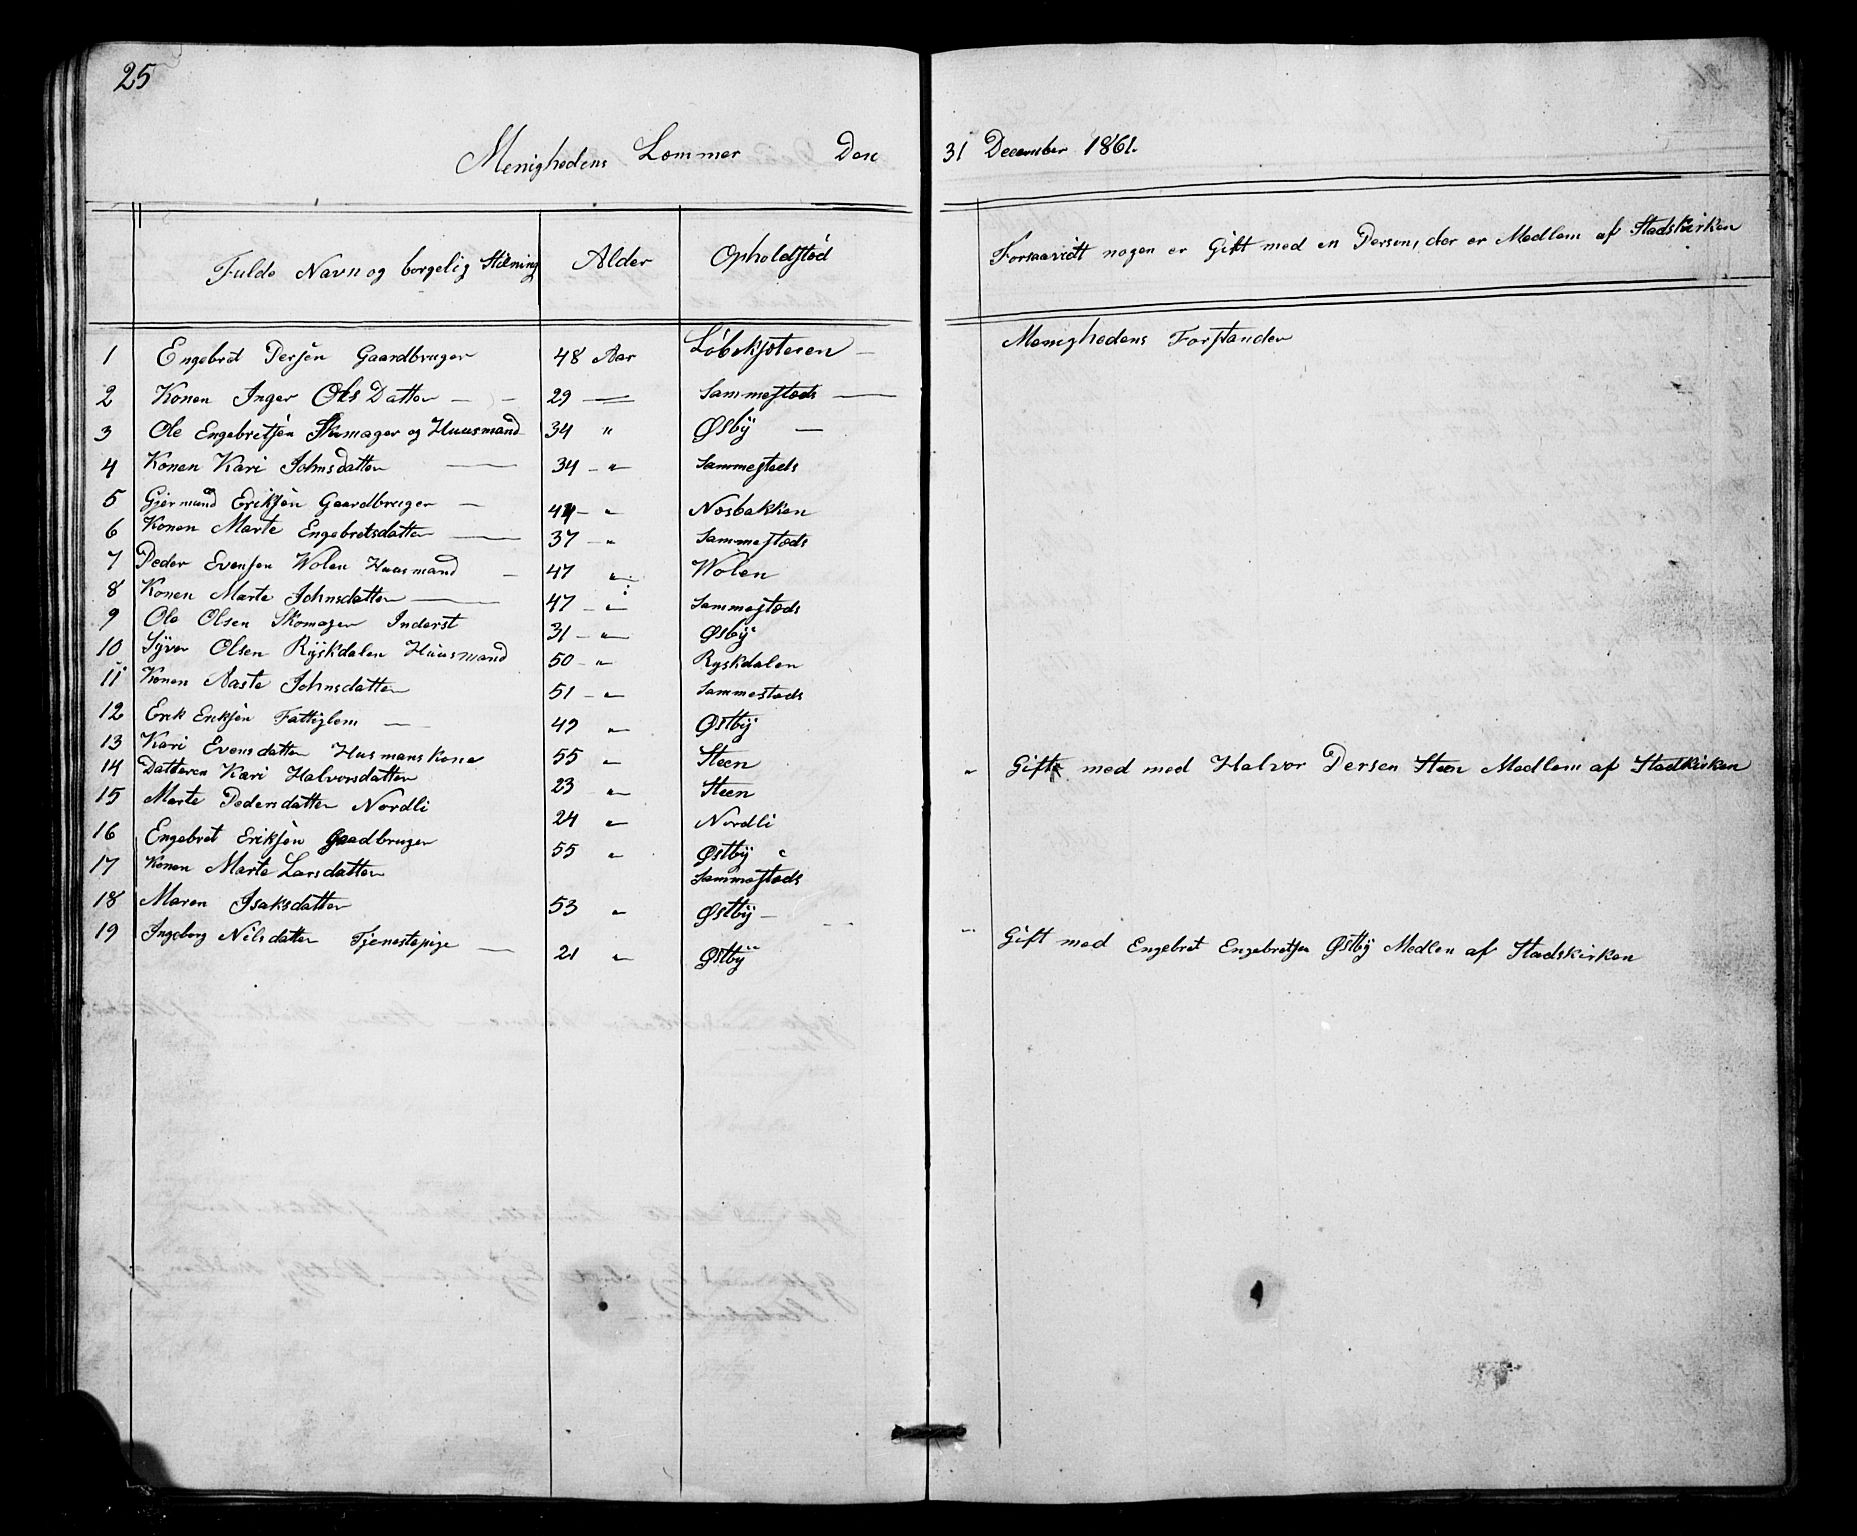 25
Menighedens Lemmer Den 31 December 1861.
Fulde Navn og borgelig Stilning Alder Opholdsted Forsaavidt nogen er Gift med en Person, der er Medlem af Stadskirken
1 Engebret Persen Gaardbruger 48 Aar Menighedens Forstander
2 Konen Inger Ols Datter — 29 — Sammesteds —
3 Ole Engebretsen Skomager og Huusmand 34 " Østby —
4 Konen Kari Johnsdatter — 34 - " Sammesteds
5 Gjermund Eriksen Gaardbruger — - " Nosbakken
6 Konen Marte Engebretsdatter — 37 - " Sammesteds
7 Peder Evensen Wolen Huusmand - 47 " Wolen
8 Konen Marte Johnsdatter — 47 - " Sammesteds
9 Ole Olsen Skomager Inderst 31 - " Østby
10 Syver Olsen Ryskdalen Huusmand 50 - " Ryskdalen
11 Konen Aaste Johnsdatter 51 - " Sammesteds
12 Erik Eriksen Fattiglem — 49 " Østby
13 Kari Evensdatter Husmanskone 55 " Steen " Gift med med Halvor Persen Steen Medlem af Stadkirken
14 Datteren Kari Halvorsdatter 23 " Steen
15 Marte Pedersdatter Nordli 24 " Nordli
16 Engebret Eriksen Gaadbruger 55 " Østby
17 Konen Marte Larsdatter Sammesteds
18 Maren Isaksdatter 53 " Østby - " Gift med Engebret Engebretsen Østby Medlem af Stadskirken
19 Ingeborg Nilsdatter Tjenestepige — 21 " Østby